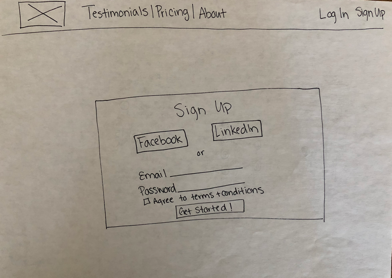 Testimonials | Pricing | About
Log In Sign Up
Sign Up
Facebook
LinkedIn
or
Email
Password
Agree to terms + conditions
Get Started!